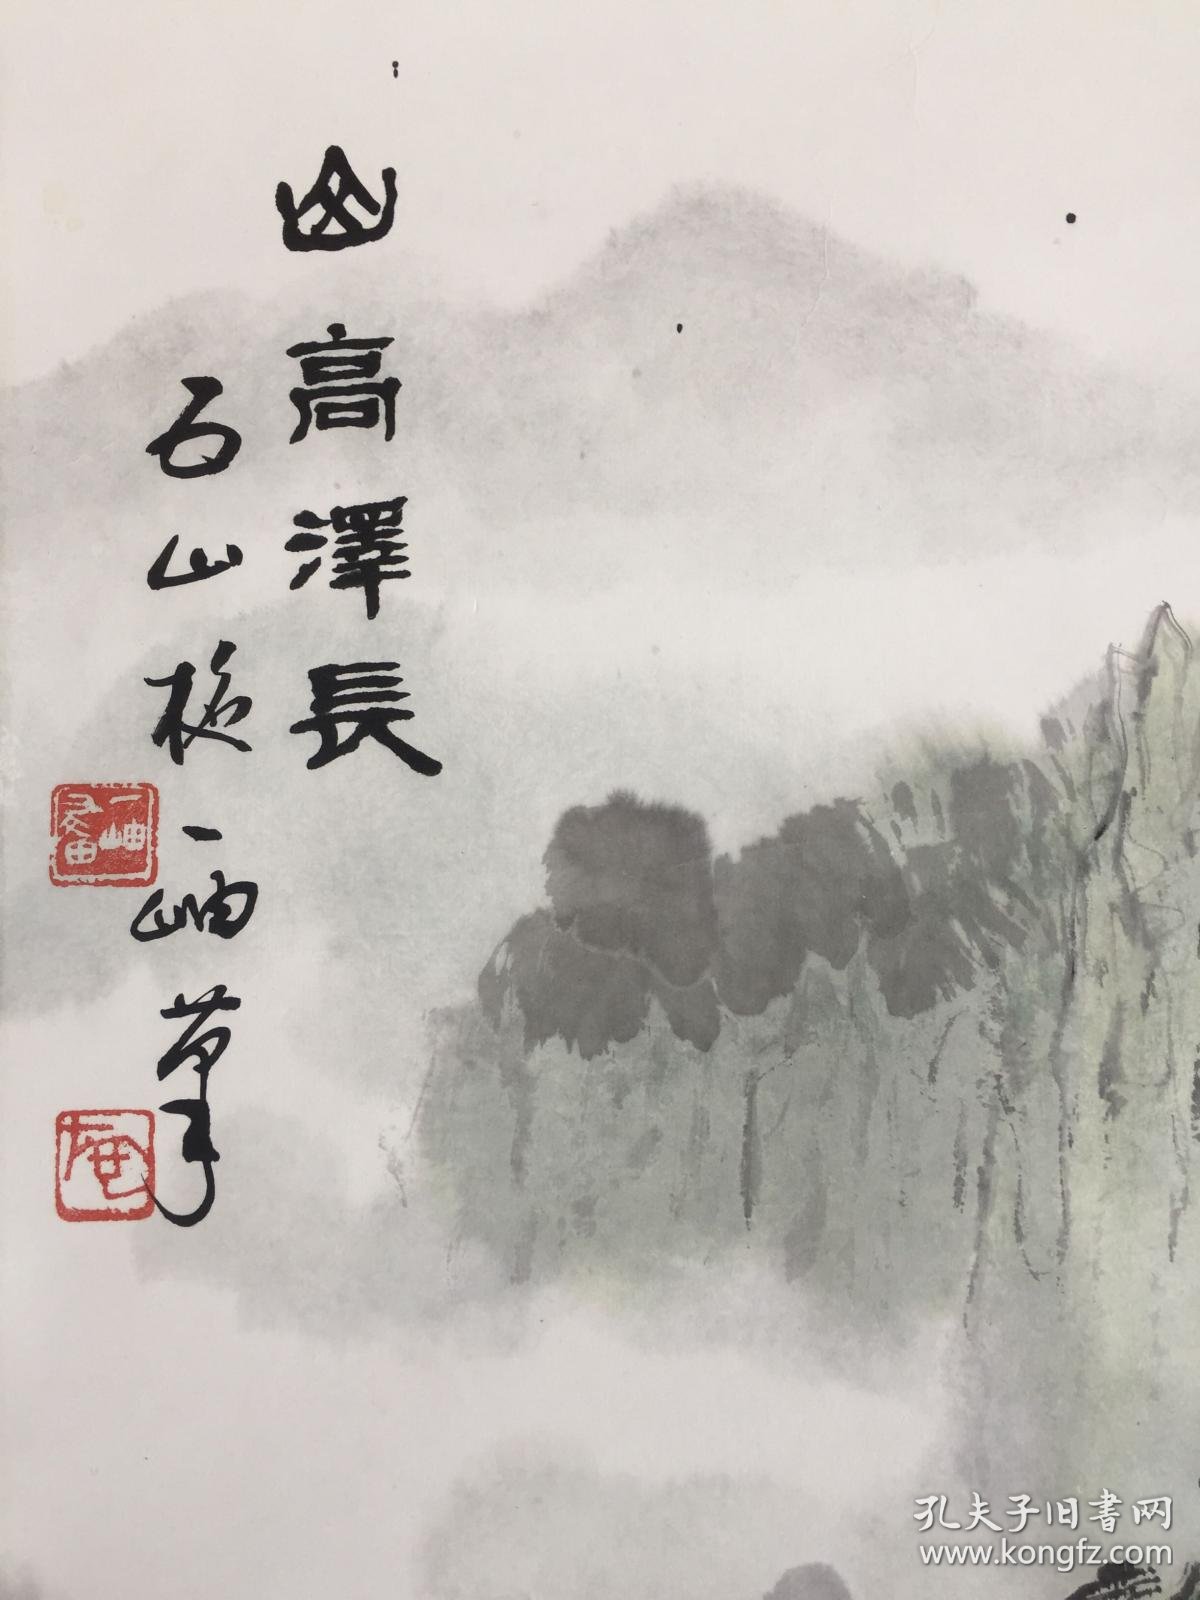 山高澤長
石山樵一岫筆
一岫
孔夫子旧書网
www.kongfz.com